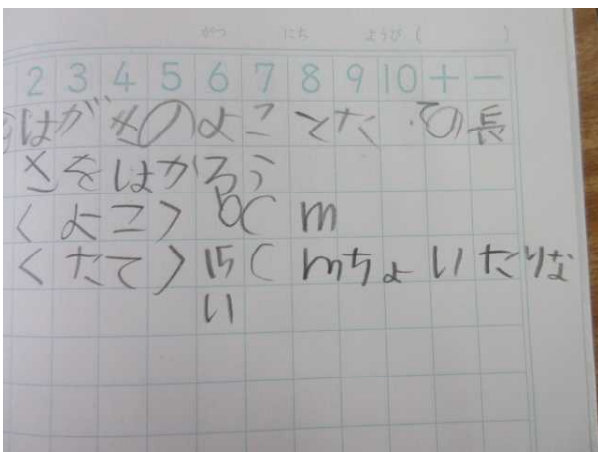 がつ にち ようび ( )
2 3 4 5 6 7 8 9 10 + −
はがきのよことたての長
さをはかろう
〈よこ〉 10cm
〈たて〉15cmちょいたりな
い